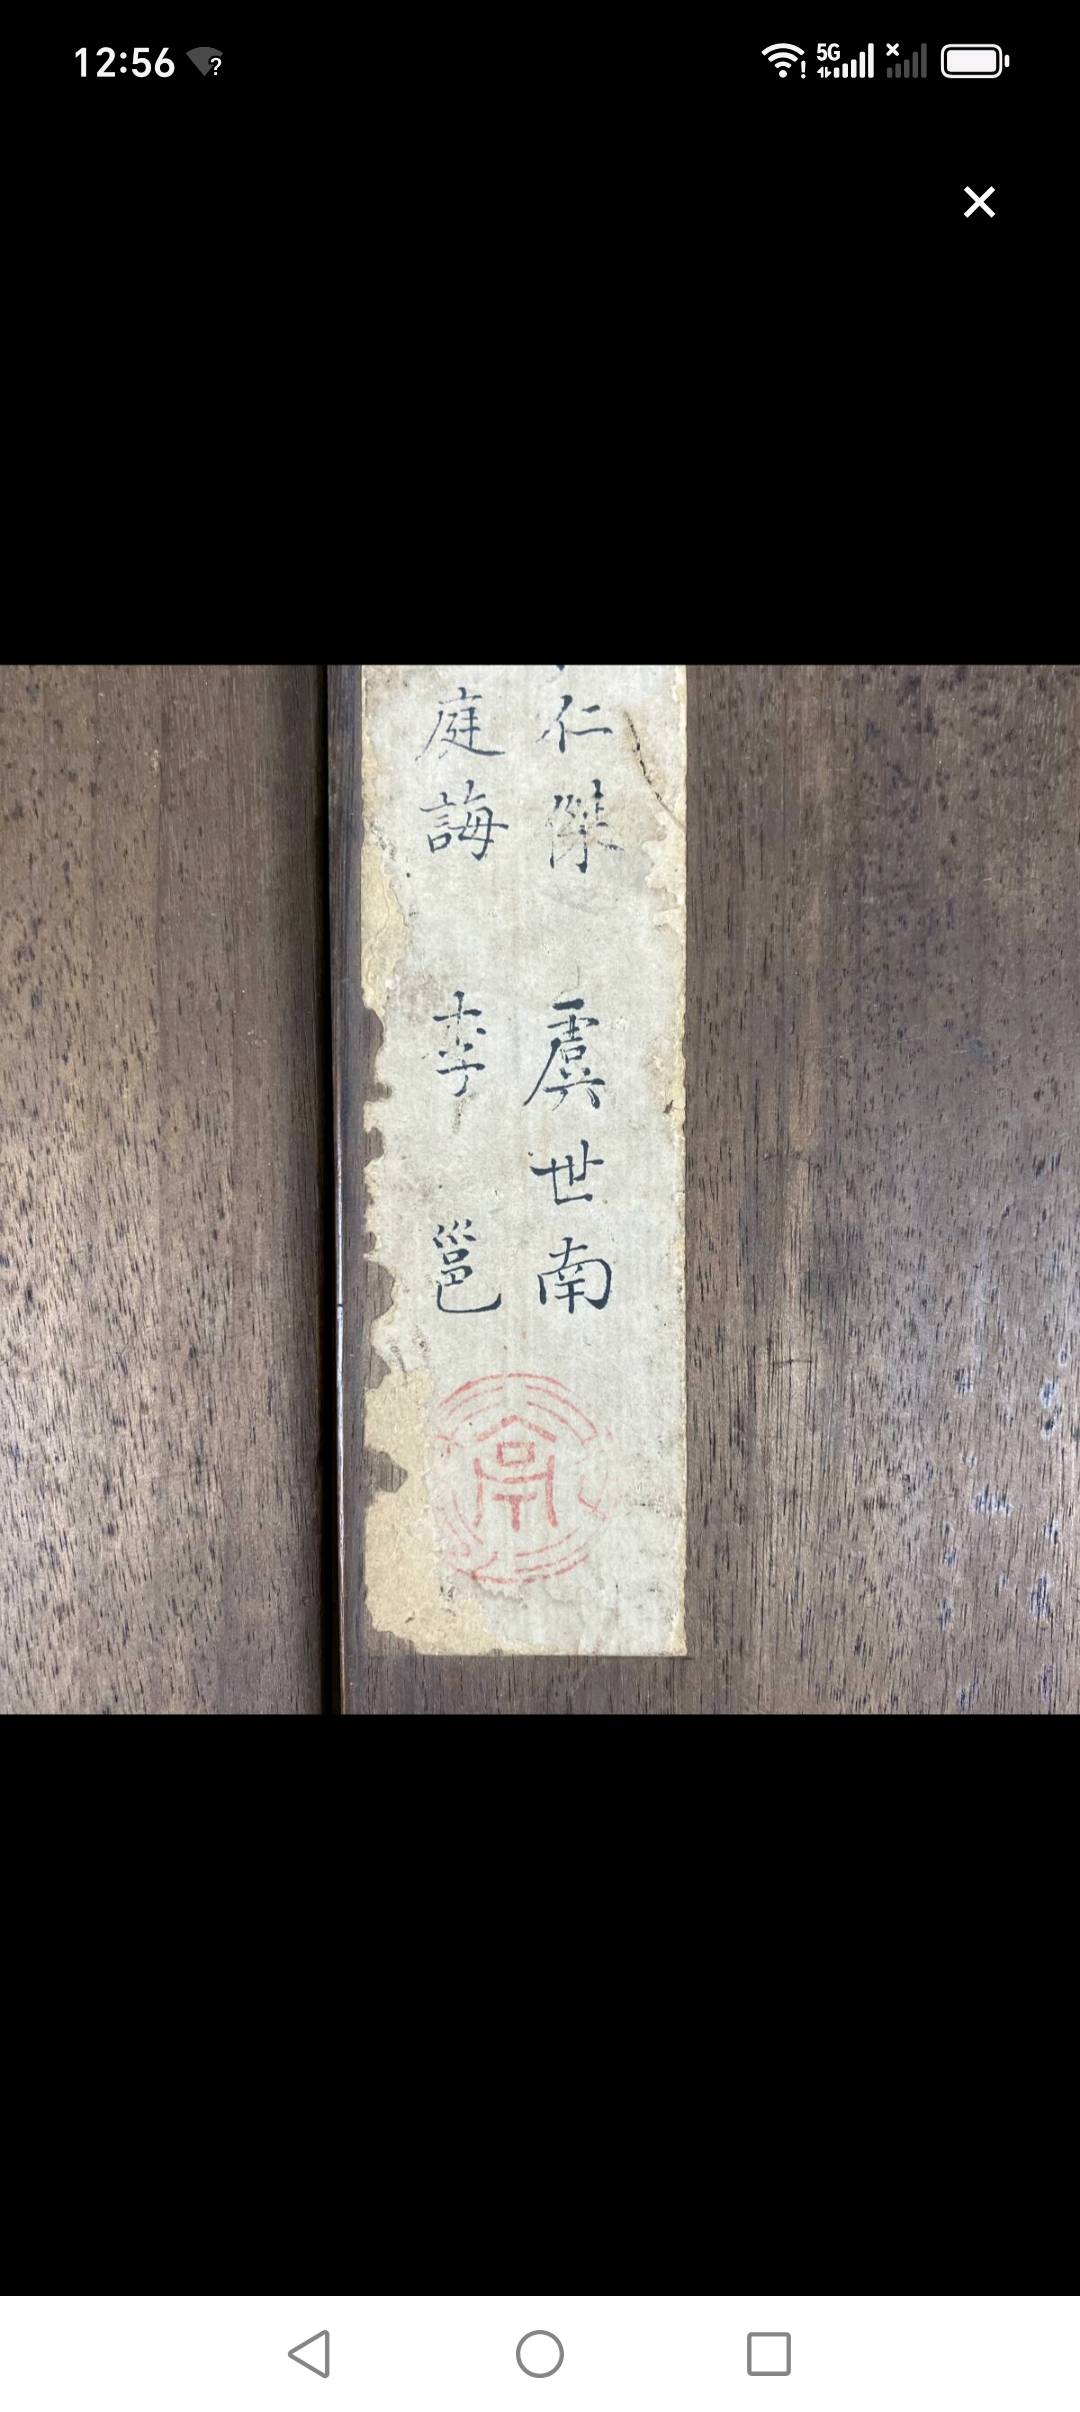 12:56
5G
仁傑 虞世南
庭誨 李邕